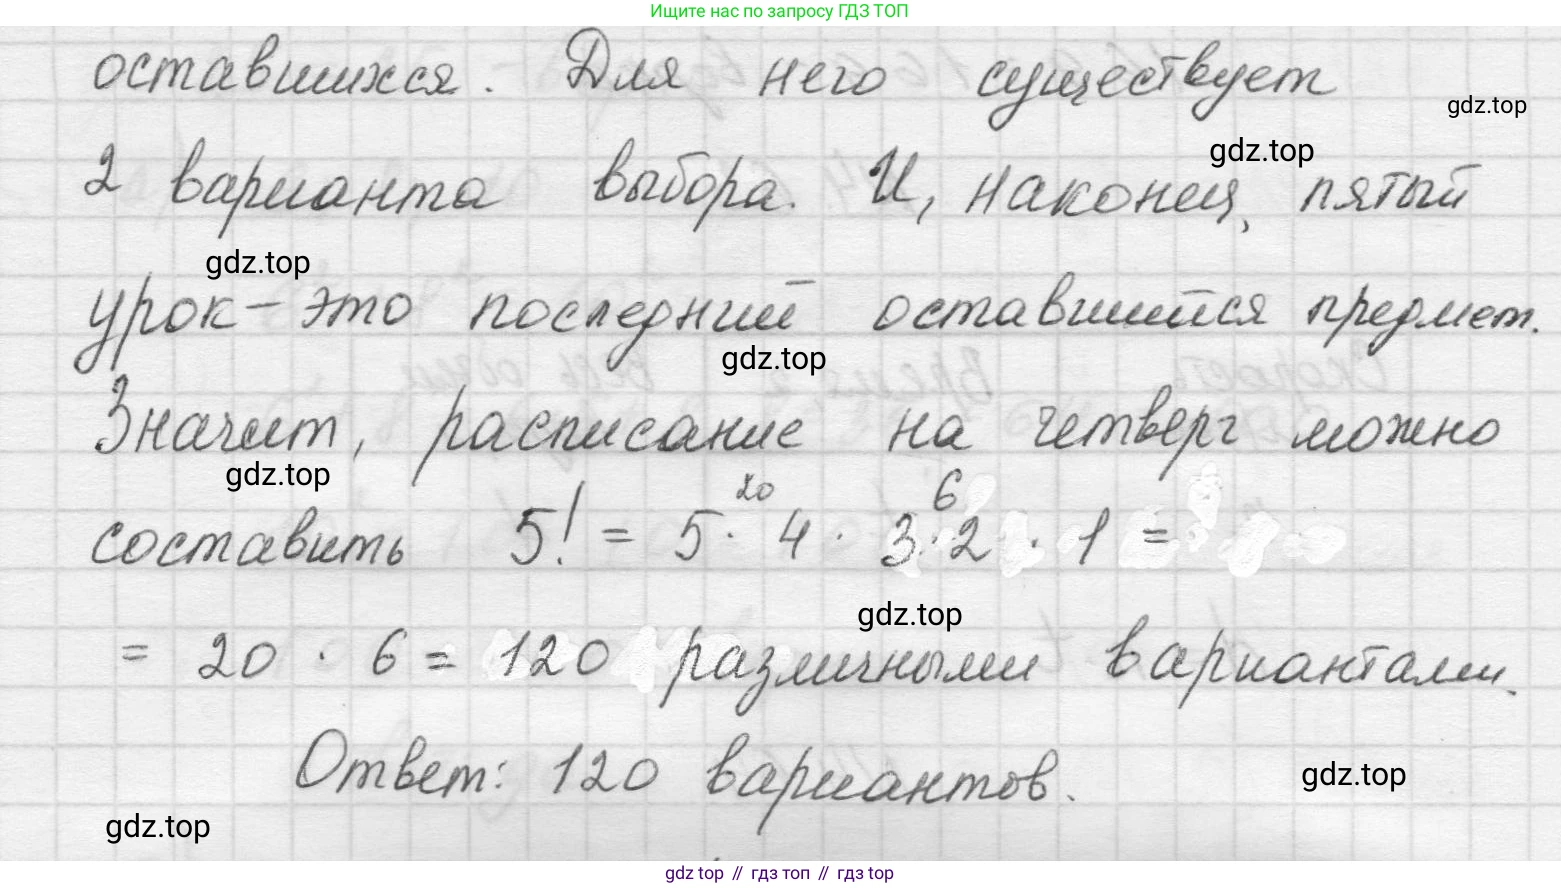 Ищите нас по запросу ГДЗ ТОП
оставшихся. Для него существует
gdz.top
gdz.top
2 варианта выбора. И, наконец, пятый
gdz.top
урок - это последний оставшийся предмет.
gdz.top
Значит, расписание на четверг можно
gdz.top
20 6
составить 5! = 5 · 4 · 3 · 2 · 1 =
gdz.top
= 20 · 6 = 120 различными вариантами.
Ответ: 120 вариантов.
gdz.top
gdz.top
gdz top // гдз топ // гдз top